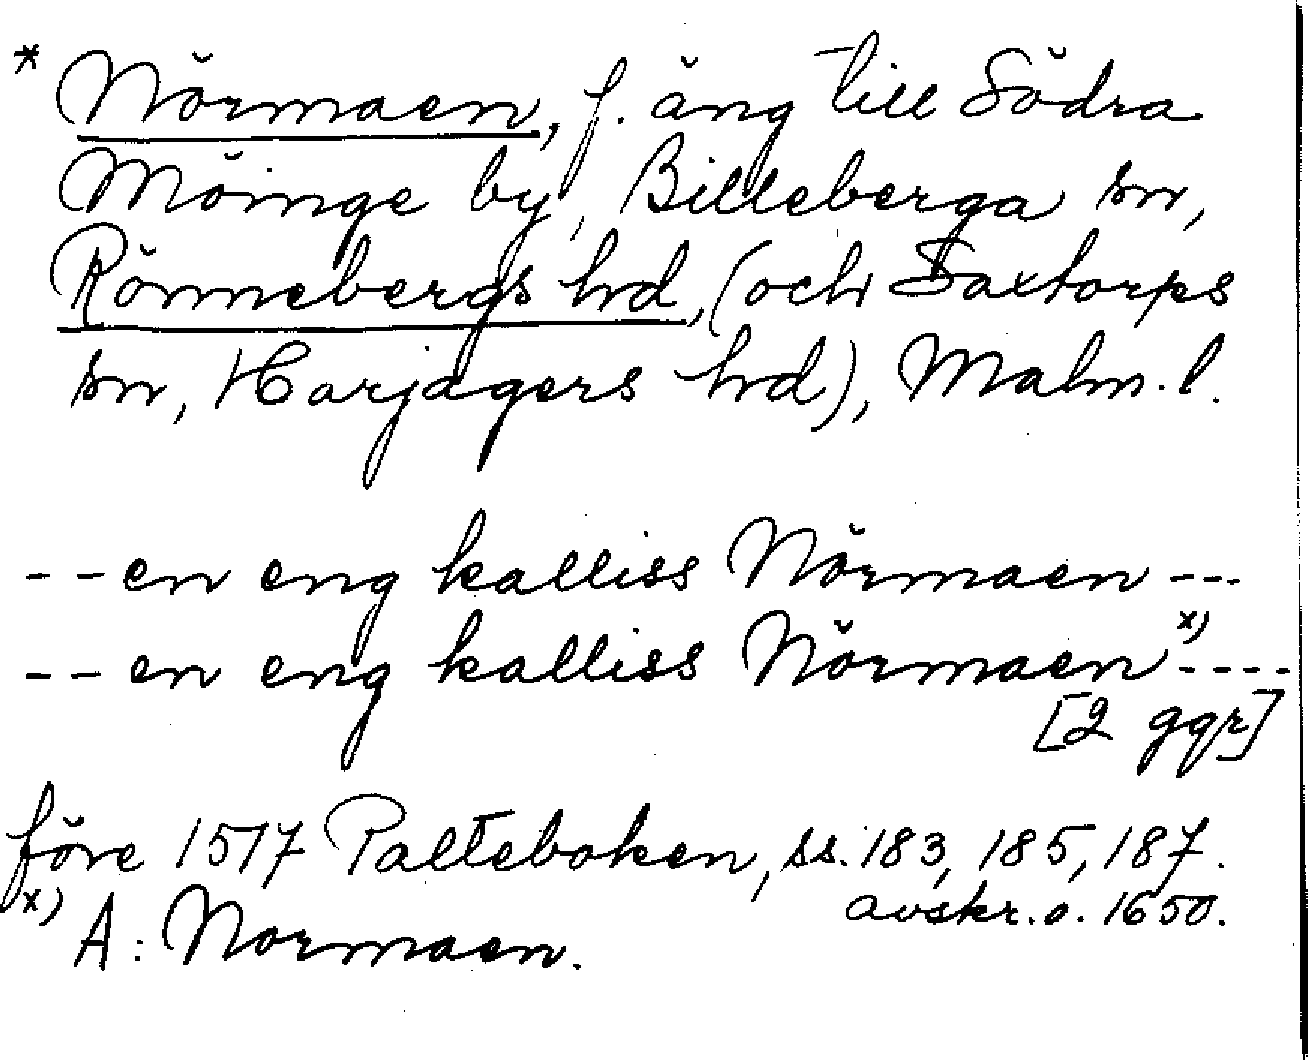 * Nörmaen, f. äng till Södra
Möinge by, Billeberga sn,
Rönnebergs hrd, (och Saxtorps
sn, Harjagers hrd), Malm. l.
-- en eng kalliss Nörmaen ---
-- en eng kalliss Nörmaen x) ----
[2 ggr]
före 1517 Palteboken, ss. 183, 185, 187.
avskr. o. 1650.
x) A: Normaen.